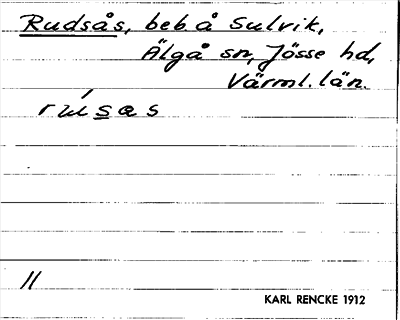 Rudsås, beb. å Sulvik,
Älgå sn, Jösse hd,
Värml. län.
11
KARL RENCKE 1912